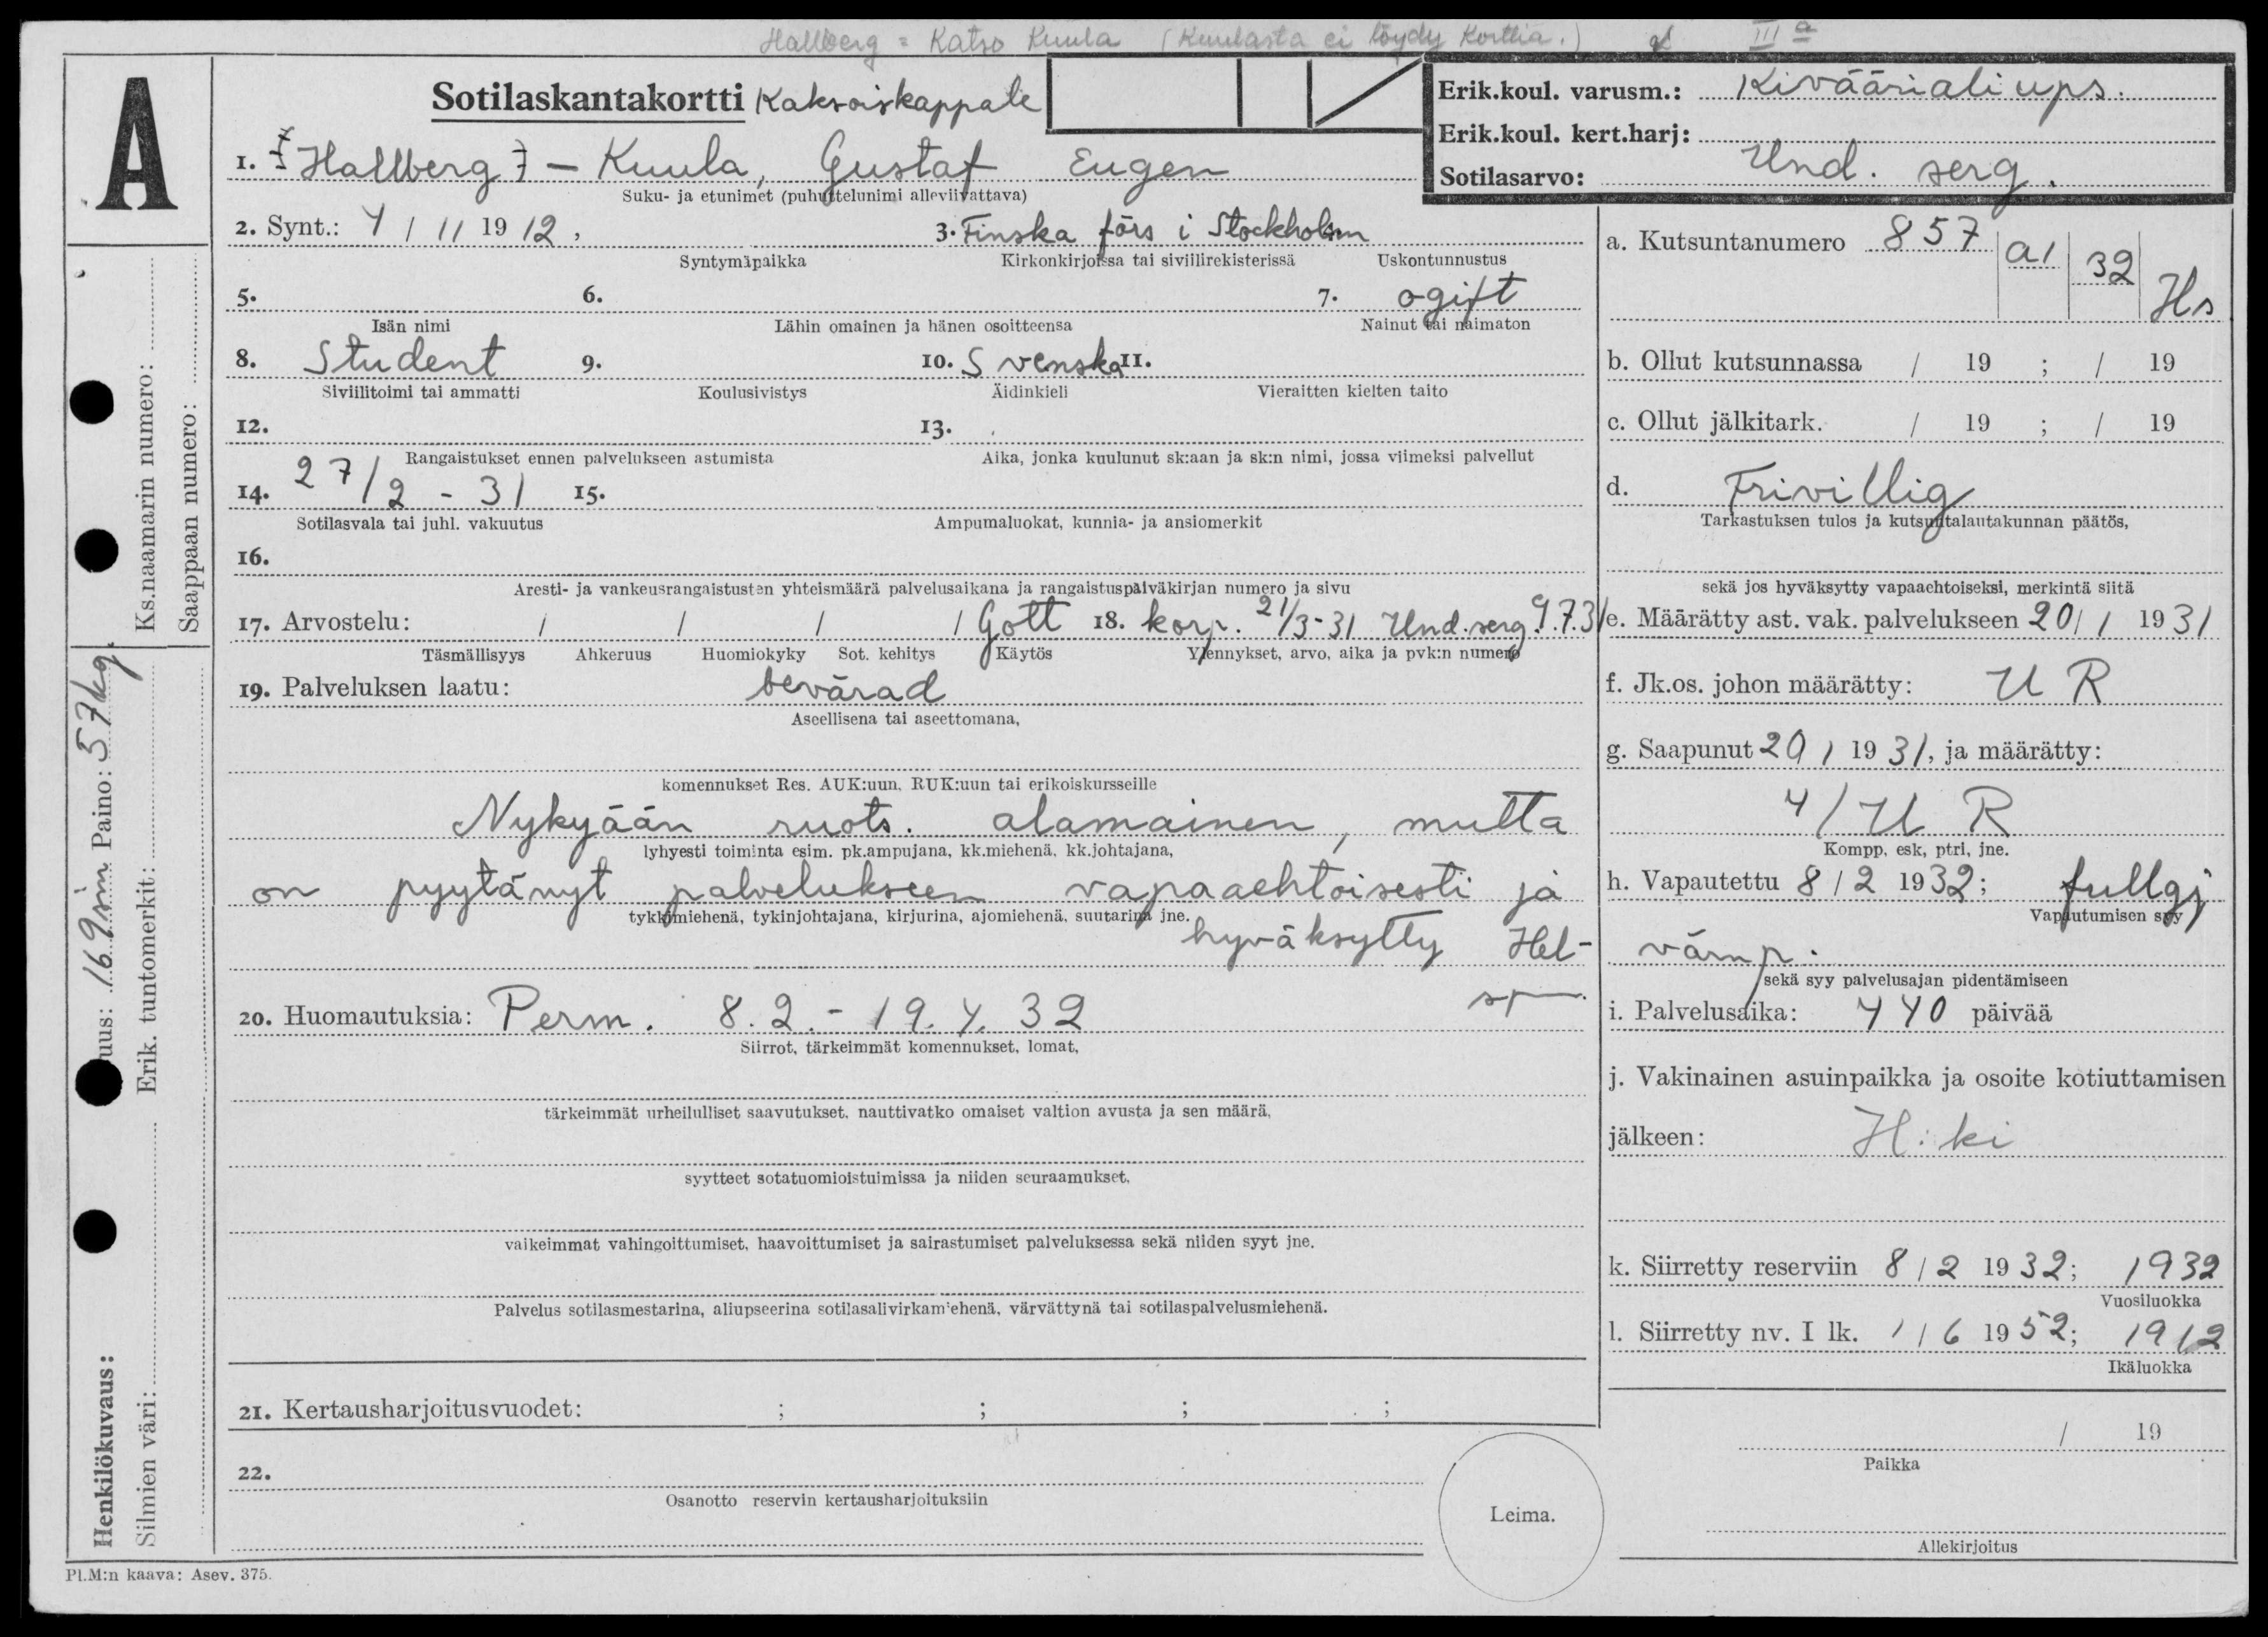 Hallberg = Katso Kuula (Kuulasta ei löydy korttia.) III a
A
Sotilaskantakortti Kaksoiskappale
Erik.koul. varusm.: Kivääriali ups.
Erik.koul. kert.harj:
Sotilasarvo: Und. serg.
1. [Hallberg] - Kuula, Gustaf Eugen
Suku- ja etunimet (puhuttelunimi alleviivattava)
2. Synt.: 4 / 11 1912, 3. Finska förs i Stockholm
Syntymäpaikka Kirkonkirjoissa tai siviilirekisterissä Uskontunnustus
5. 6. 7. ogift
Isän nimi Lähin omainen ja hänen osoitteensa Nainut tai naimaton
8. Student 9. 10. Svenska 11.
Siviilitoimi tai ammatti Koulusivistys Äidinkieli Vieraitten kielten taito
12. 13.
Rangaistukset ennen palvelukseen astumista Aika, jonka kuulunut sk:aan ja sk:n nimi, jossa viimeksi palvellut
14. 27/2 - 31 15.
Sotilasvala tai juhl. vakuutus Ampumaluokat, kunnia- ja ansiomerkit
16.
Aresti- ja vankeusrangaistusten yhteismäärä palvelusaikana ja rangaistuspäiväkirjan numero ja sivu
17. Arvostelu: / / / / Gott 18. korp. 21/3-31 Und.serg. 9.7.31
Täsmällisyys Ahkeruus Huomiokyky Sot. kehitys Käytös Ylennykset, arvo, aika ja pvk:n numero
19. Palveluksen laatu: bevärad
Aseellisena tai aseettomana,
komennukset Res. AUK:uun, RUK:uun tai erikoiskursseille
Nykyään ruots. alamainen, mutta
lyhyesti toiminta esim. pk.ampujana, kk.miehenä, kk.johtajana,
on pyytänyt palvelukseen vapaaehtoisesti ja
tykkimiehenä, tykinjohtajana, kirjurina, ajomiehenä, suutarina jne.
hyväksytty Hel-
20. Huomautuksia: Perm. 8.2.- 19.4.32
Siirrot, tärkeimmät komennukset, lomat,
tärkeimmät urheilulliset saavutukset, nauttivatko omaiset valtion avusta ja sen määrä,
syytteet sotatuomioistuimissa ja niiden seuraamukset,
vaikeimmat vahingoittumiset, haavoittumiset ja sairastumiset palveluksessa sekä niiden syyt jne.
Palvelus sotilasmestarina, aliupseerina sotilasalivirkamiehenä, värvättynä tai sotilaspalvelusmiehenä.
21. Kertausharjoitusvuodet: ; ; ; ;
22.
Osanotto reservin kertausharjoituksiin
Leima.
a. Kutsuntanumero 857 a1 32 Hs
b. Ollut kutsunnassa / 19 ; / 19
c. Ollut jälkitark. / 19 ; / 19
d. Frivillig
Tarkastuksen tulos ja kutsuntalautakunnan päätös,
sekä jos hyväksytty vapaaehtoiseksi, merkintä siitä
e. Määrätty ast. vak. palvelukseen 20/1 1931
f. Jk.os. johon määrätty: U R
g. Saapunut 20 1 1931, ja määrätty:
4/U R
Kompp, esk, ptri, jne.
h. Vapautettu 8/2 1932; fullgj
Vapautumisen syy
värnp.
sekä syy palvelusajan pidentämiseen
i. Palvelusaika: 440 päivää
j. Vakinainen asuinpaikka ja osoite kotiuttamisen
jälkeen: H:ki
k. Siirretty reserviin 8/2 1932; 1932
Vuosiluokka
l. Siirretty nv. I lk. 1/6 1952; 1912
Ikäluokka
/ 19
Paikka
Allekirjoitus
Ks.naamarin numero:
Saappaan numero:
Henkilökuvaus: uus: 169 sm Paino: 57 kg.
Silmien väri: Erik. tuntomerkit:
Pl.M:n kaava: Asev. 375.